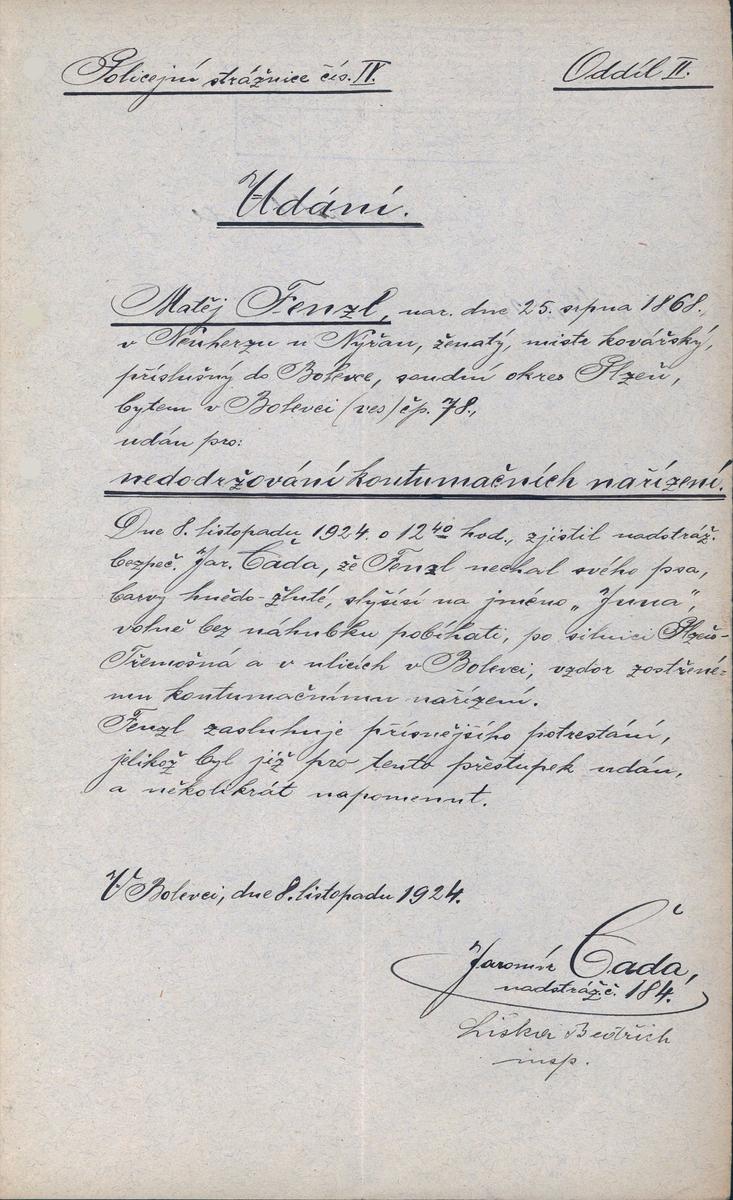 Policejní strážnice čís. IV.
Oddíl II.
Udání.
Matěj Fenzl, nar. dne 25. srpna 1868.,
v Neuherzu u Nýřan, ženatý, mistr kovářský,
příslušný do Bolevce, soudní okres Plzeň,
bytem v Bolevci (ves) čp. 78.,
udán pro:
nedodržování kontumačních nařízení.
Dne 8. listopadu 1924. o 12 40 hod., zjistil nadstráž.
bezpeč. Jar. Čada, že Fenzl nechal svého psa,
barvy hnědo-žluté, slyšící na jméno „Juna",
volně bez náhubku pobíhati, po silnici Plzeň-
Třemošná a v ulicích v Bolevci, vzdor zostřené-
mu kontumačnímu nařízení.
Fenzl zasluhuje přísnějšího potrestání,
jelikož byl již pro tento přestupek udán,
a několikrát napomenut.
V Bolevci, dne 8. listopadu 1924.
Jaromír Čada,
nadstráž. č. 184.
Liška Bedřich
insp.